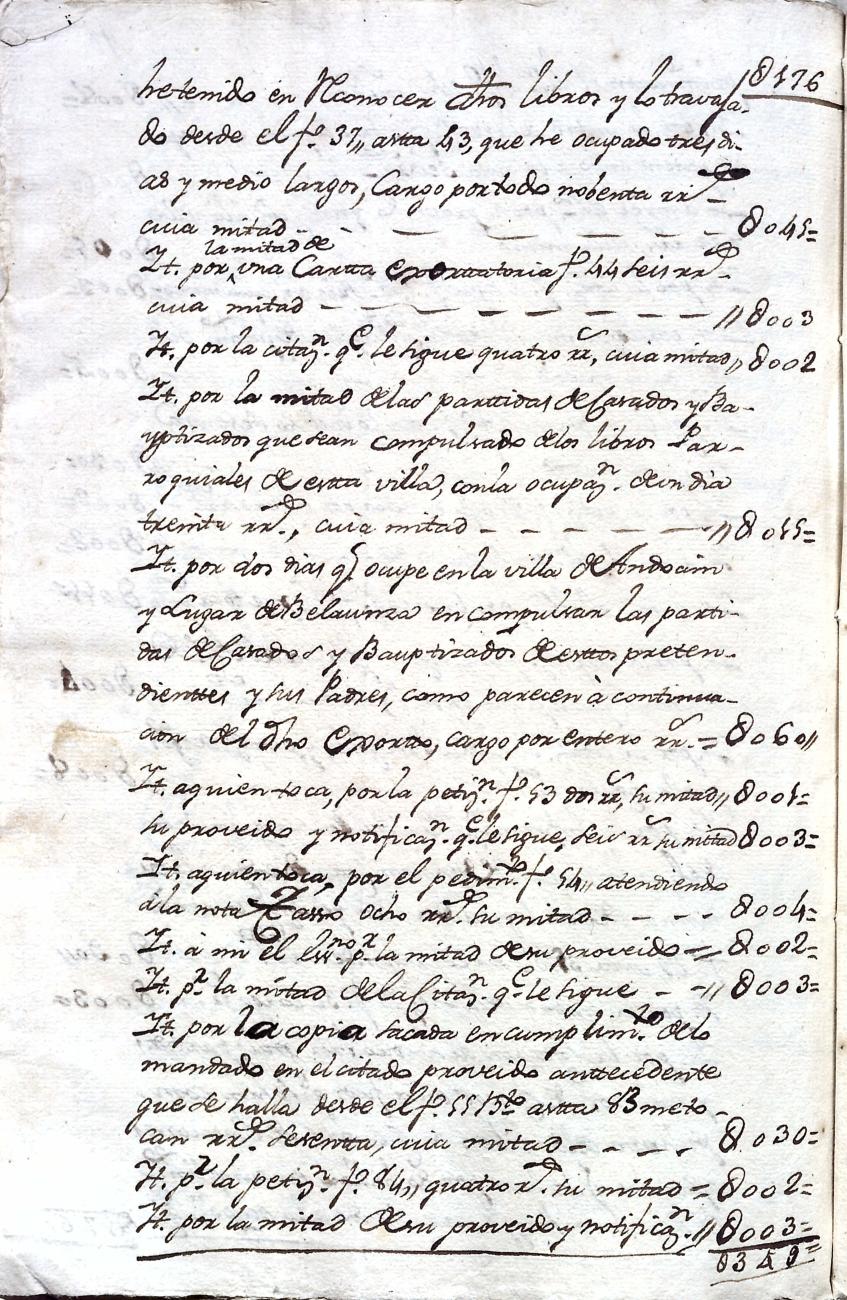 8176
he tenido en Reconocer dhos libros y lo travaja-
do desde el fº. 37,, astta 43, que he ocupado tres di-
as y medio largos, Cargo por todo nobenta rrˢ
cuia mitad - - - - - - - 8045=
Y la mitad de
Yt. por ^ una Cartta Exorttatoria fº. 44 seis rrˢ -
cuia mitad - - - - - - - ,,8003
Yt. por la citazⁿ. qᵉ. le sigue quatro rrˢ, cuia mitad,, 8002
Yt. por la mitad de las parttidas de Casados y Ba-
uptizados que sean compulsado de los libros Par-
roquiales de estta villa, con la ocupazⁿ. de un dia
treinta rrˢ., cuia mitad - - - - ,,8015=
Yt. por dos dias q̃ ocupe en la villa de Andoain
y Lugar de Belaunza en compulsar las parti-
das de Casados y Bauptizados de esttos preten-
dienttes y sus Padres, como parecen à continua-
cion del dho Exortto, cargo por entero rrˢ. = 8060,,
Yt. aquien toca, por la petizⁿ. fº. 53 dos rrˢ, su mitad,, 8001=
su proveido y notificazⁿ. qᵉ. le sigue, seis rrˢ su mitad 8003=
Yt. aquien toca, por el pedimᵗᵒ. fº. 54,, atendiendo
à la nota Tasso ocho rrˢ. su mitad - - - - 8004=
Yt. à mi el essⁿᵒ. pʳ. la mitad de su proveido = 8002=
Yt. pʳ. la mitad de la Citazⁿ. qᵉ. le sigue - - ,,8003=
Yt. por la copia sacada en cumplimᵗᵒ. de lo
mandado en el citado proveido anttecedente
que se halla desde el fº. 55 Bᵗᵒ astta 83 me to-
can rrˢ. sesentta, cuia mitad - - - - 8030=
Yt. pʳ. la petizⁿ. fº. 84,, quatro rˢ. su mitad = 8002=
Yt. por la mitad de su proveido y notificazⁿ. ,,8003=
8349=